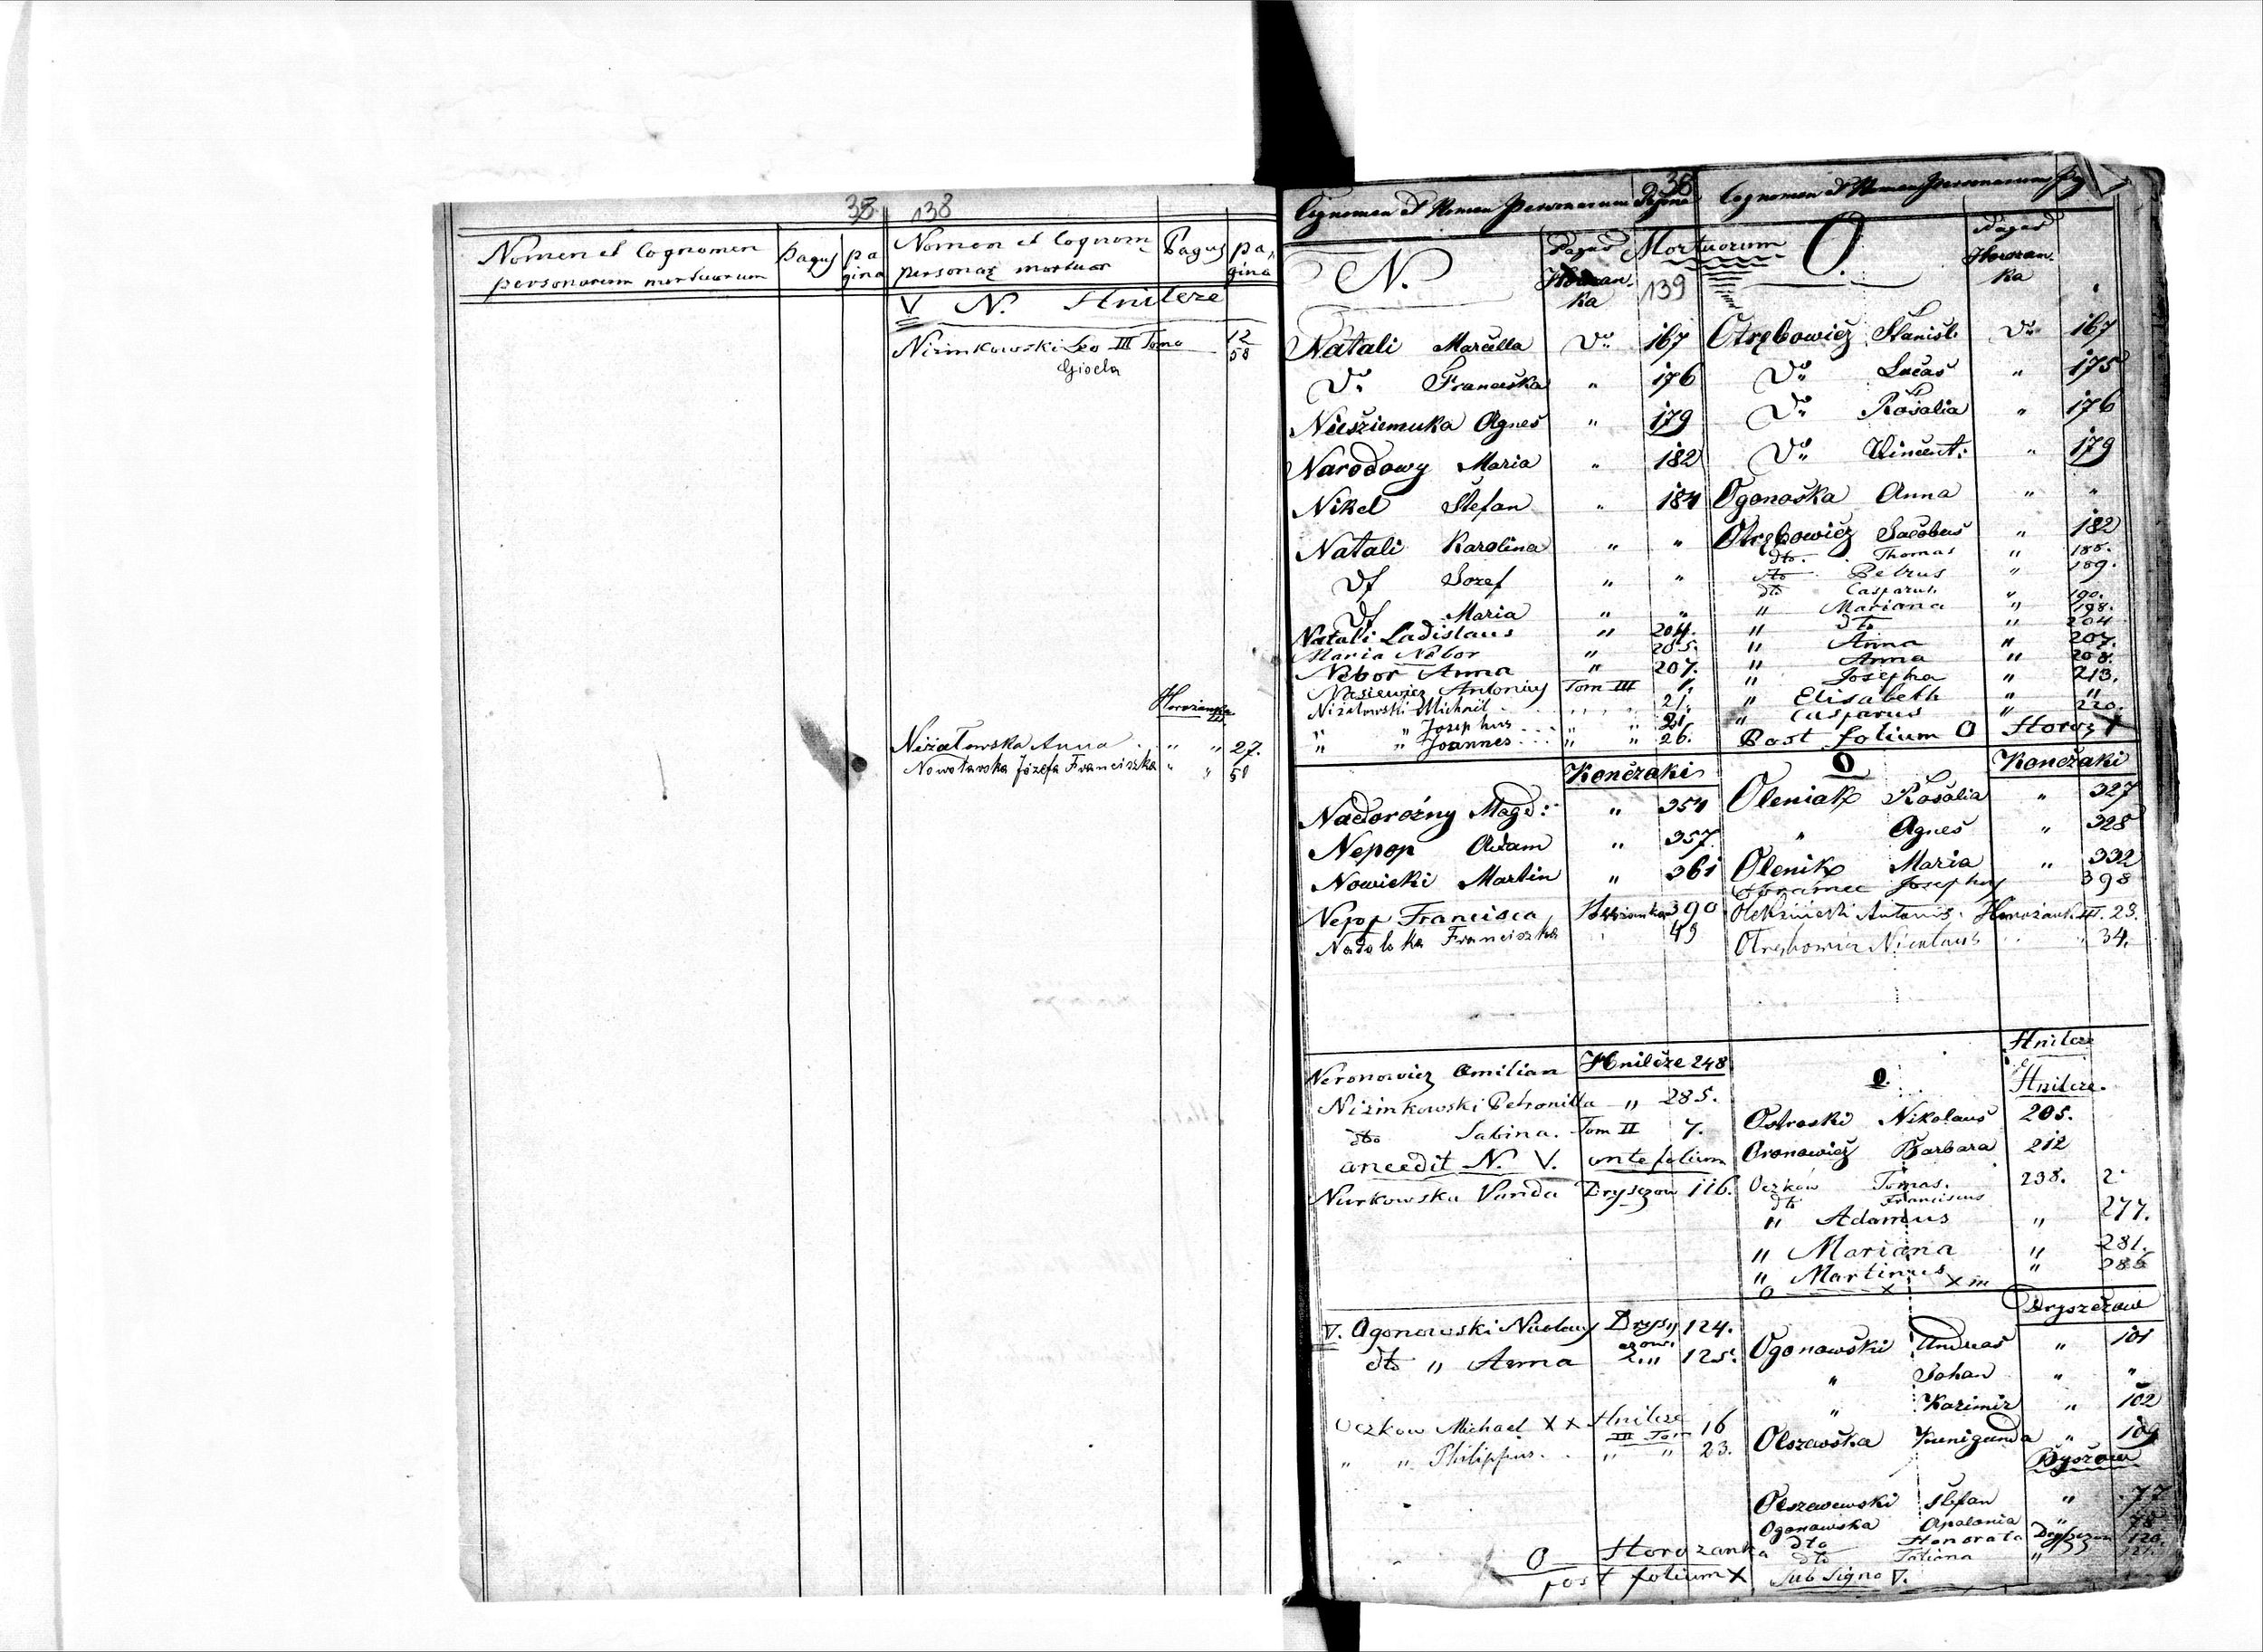 38 138
Nomen et Cognomen personarum mortuorum Pagus pagina
Nomen et Cognom personar mortuor Pagus pagina
V N. Hnilcze
Nizinkowski Leo III Tomo 12
Gisela 58
Horożanka
Niziałowska Anna " " 27.
Nowotarska Józefa Franciszka " " 51
38
Cognomen et Nomen Personarum Pagina
N. Pagus Horożanka Mortuorum 139
Natali Marcella Do 167
Do Franciska " 176
Niesziemuka Agnes " 179
Narodowy Maria " 182
Nikel Stefan " 184
Natali Karolina " "
Do Jozef " "
Do Maria " "
Natali Ladislaus " 204.
Maria Nebor " 205.
Nebor Anna " 207.
Antonius Tom III 1.
Michael 21.
" " Josephus " " 21.
" " Joannes " " 26.
Konczaki
Nadorożny Magd: " 354
Nepop Adam " 357
Nowicki Martin " 361
Nepop Francisca 390
Franciszka 49
Neronowicz Emilian Hnilcze 248
Nizinkowski Petronilla " 285.
dto Sabina. Tom II 7.
N. V. ante folium
Nurkowska Vanda Dryszczow 116.
V. Ogonowski Nicolaus Dryszczow. 124.
dto " Anna " 125.
Oczkow Michael X X Hnilcze III Tom 16
" " Philippus. " " 23.
O Horozanka
post folium X
Cognomen et Nomen Personarum Pag
O. Pagus Horożanka
Otrębowicz Stanisl. Do 167
Do Lucas " 175
Do Rosalia " 176
Do Vincent: " 179
Ogonoska Anna " "
Otrębowicz Jacobus " 182
dto Thomas " 188.
dto Petrus " 189.
dto Casparus. " 190.
" Mariana " 198.
" dto " 204
" Anna " 207.
" Anna " 208.
" Josepha " 213.
" Elisabeth " "
" Casparus " 220.
Post folium O Horoz X
O Konczaki
Oleniak Rosalia " 327
" Agnes " 328
Olenik Maria " 332
Josephus 398
Antonis. Horożank III. 23.
Otrębowicz Nicolaus " " 34.
O. Hnilcze
Hnilcze.
Ostroski Nikolaus 205.
Oronowicz Barbara 212
Oczkow Tomas. 238. 2
dto Franciscus
" Adamus " 277.
" Mariana " 281.
" Martinus " 286
O X X III
Dryszczow
Ogonowski Andreas " 101
" Johan " "
" Kazimir " 102
Olszewska Kunigunda " 109
Byszow
Olszewski Stefan " 77
Ogonowska Apolonia " 78
dto Honorata Dryszczow 120.
dto Tatiana " 121.
Sub Signo V.